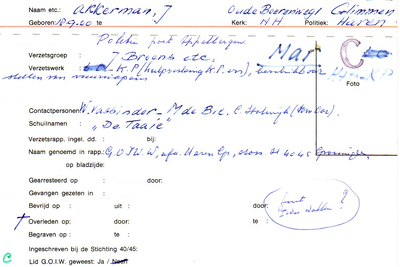 Naam etc.: Akkerman, J Oude Boerenweg Glimmen
Geboren: 18-9-00 te Kerk: NH Politiek: Haren
Politie post Appelbergen
Verzetsgroep : J Broens etc.
Verzetswerk : K.P (hulpverlening K.P. ers), beschikbaar
stellen van vuurwapens
Mar C
Foto
Contactpersonen: W. Vasbinder - M de Bie, C.
Schuilnaam : "De Taaie"
Verzetsrapp. ingel. dd. : bij:
Naam genoemd in rapp.: G.O.I.W.W, afd. Haren Gp, doos H 4045 Groningen
op bladzijde:
Gearresteerd op : door:
Gevangen gezeten in :
Bevrijd op : uit : door:
Overleden op: door: te :
Begraven op : te :
Ingeschreven bij de Stichting 40/45:
C Lid G.O.I.W. geweest: Ja / Neen